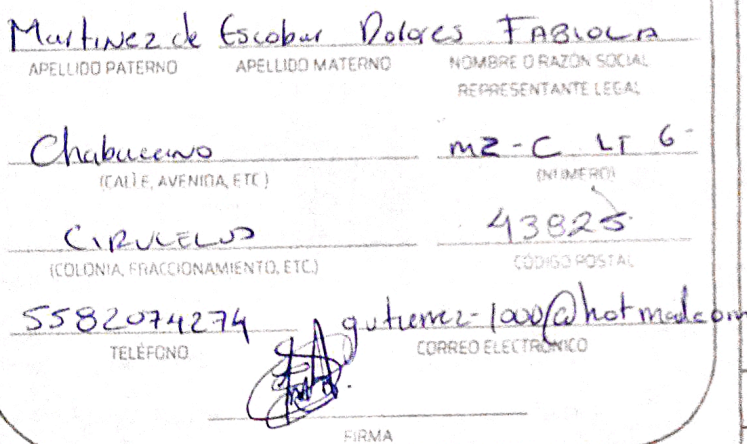 Martinez de Escobar Dolores FABIOLA
APELLIDO PATERNO APELLIDO MATERNO NOMBRE O RAZÓN SOCIAL
REPRESENTANTE LEGAL
Chabacano mz-C LT 6-
(CALLE, AVENIDA, ETC.) (NÚMERO)
CIRUELOS 43825
(COLONIA, FRACCIONAMIENTO, ETC.) CÓDIGO POSTAL
5582074274 gutierrez-1000@hotmail.com
TELÉFONO CORREO ELECTRÓNICO
FIRMA